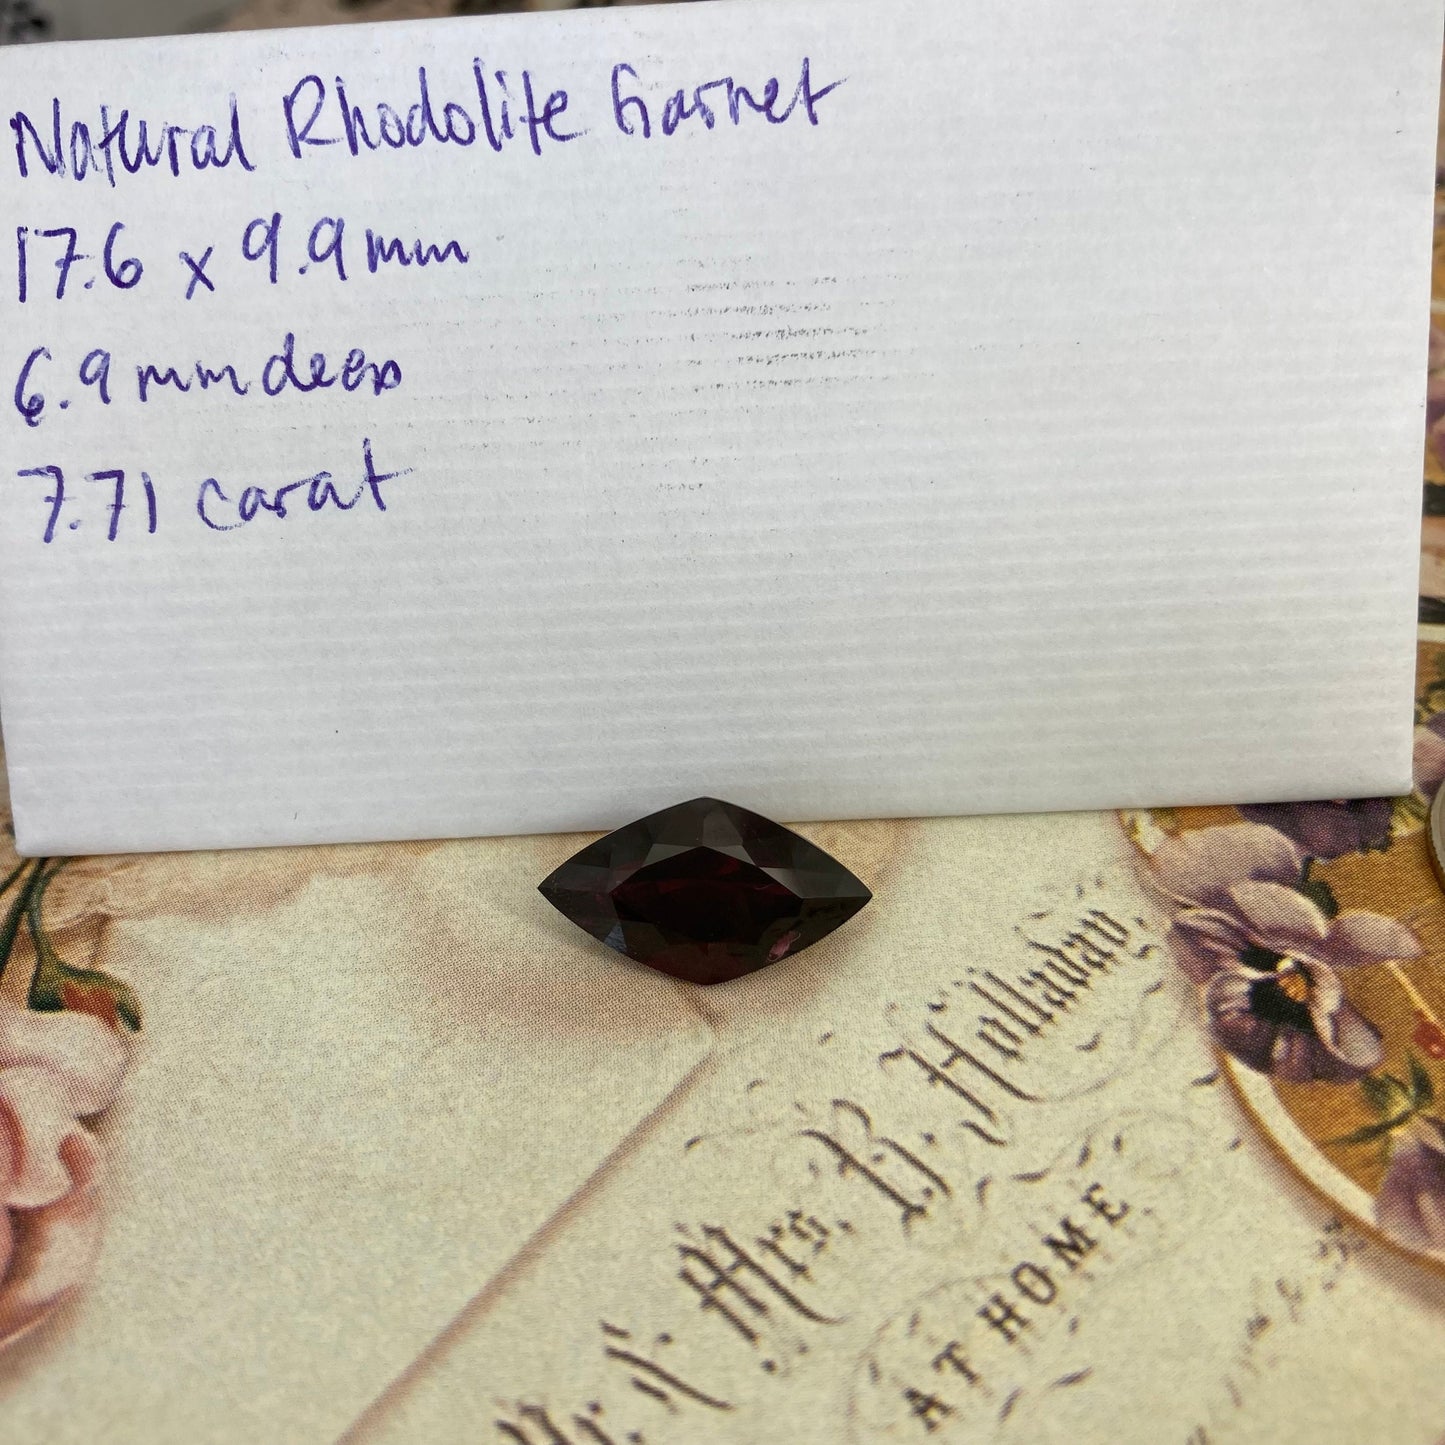 Natural Rhodolite Garnet
17.6 x 9.9mm
6.9mm deep
7.71 carat
Mr. & Mrs. B. Holladay,
AT HOME